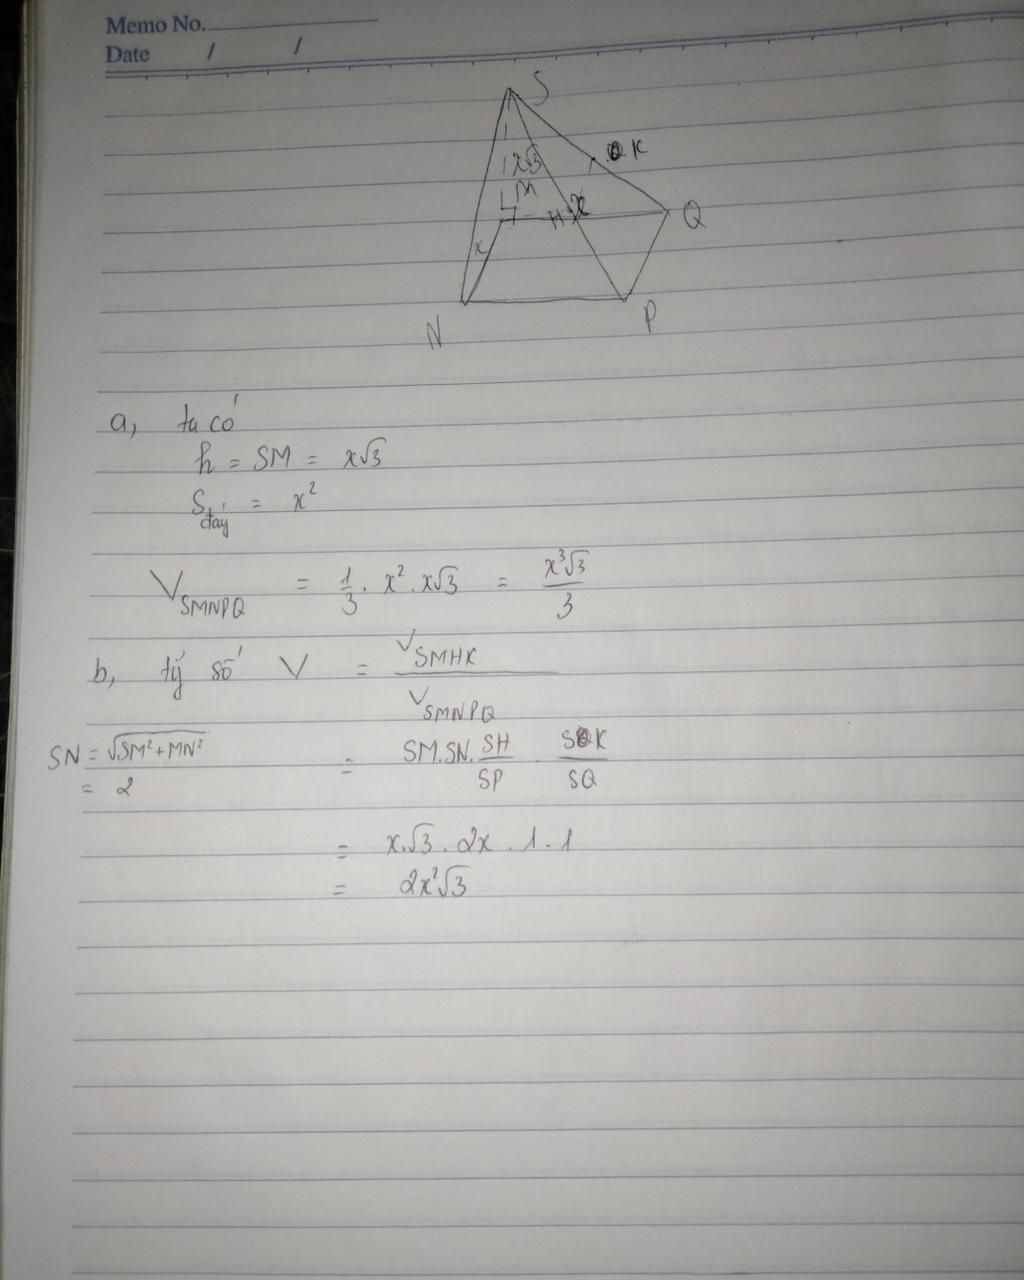 Memo No.
Date / /
S
K
x√3
M
H
x
Q
x
N
P
a, ta có
h = SM = x√3
S đáy = x²
V SMNPQ = 1/3 . x² . x√3 = x³√3/3
b, tỷ số V = V SMHK / V SMNPQ
SN = √SM² + MN²
= SM.SN. SH/SP . SK/SQ
= 2
= x.√3 . 2x . 1 . 1
= 2x²√3